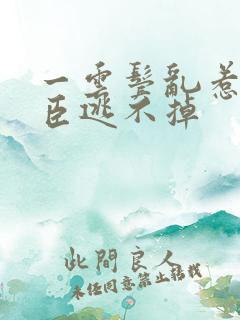 一雲鬓亂惹
臣逃不掉
此間良人
未经同意禁止转载